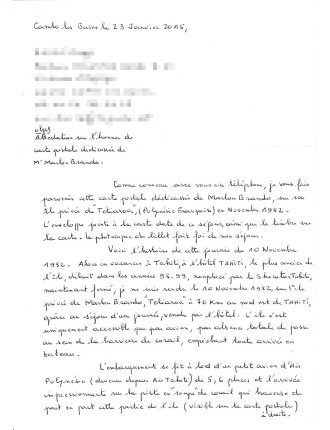 Cambo les Bains le 23 Janvier 2015,
objet
Attestation sur l'honneur de
carte postale dédicacée de
Mr Marlon Brando.
Comme convenu avec vous au téléphone, je vous fais
parvenir cette carte postale dédicacée de Marlon Brando, sur son
île privée de "Tetiaroa", (Polynésie Française) en Novembre 1982.
L'enveloppe jointe à la carte date de ce séjour ainsi que le timbre sur
la carte. La photocopie du billet fait foi de mon séjour.
Voici l'histoire de cette journée du 10 Novembre
1982. Alors en vacances à Tahiti, à l'hôtel TAHITI, le plus ancien de
l'île, détruit dans les années 98.99, remplacé par le Sheraton Tahiti,
maintenant fermé, je me suis rendu le 10 Novembre 1982, sur l'île
privée de Marlon Brando, "Tetiaroa" à 70 Km au nord est de TAHITI,
grâce au séjour d'une journée, vendu par l'hôtel. L'île est
uniquement accessible que par avion, par absence totale de passe
au sein de la barrière de corail, empêchant toute arrivée en
bateau.
L'embarquement se fit à bord d'un petit avion d'Air
Polynésie (devenu depuis Air Tahiti) de 5, 6 places et l'arrivée
impressionnante sur la piste en "soupe" de corail qui traverse de
part en part cette partie de l'île (visible sur la carte postale)
à droite.